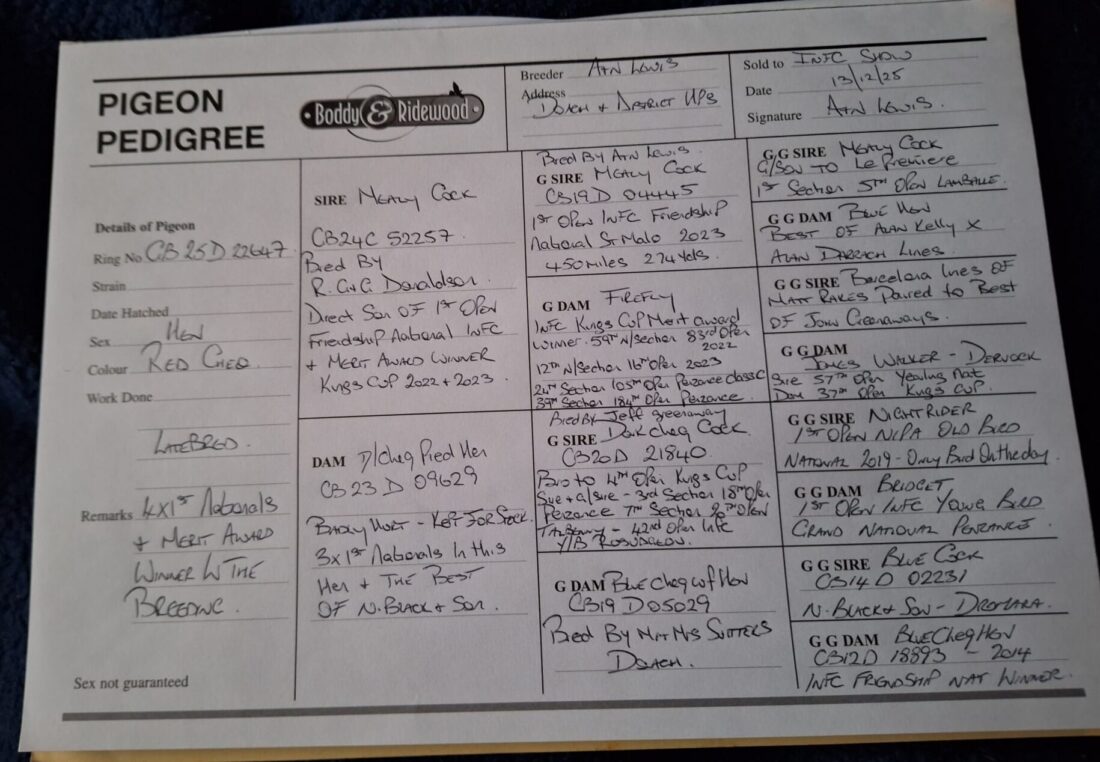 PIGEON
PEDIGREE
Boddy & Ridewood
Breeder A+N Lewis
Address
Doagh + District HPS
Sold to INFC Show
Date 13/12/25
Signature A+N Lewis.
Details of Pigeon
Ring No GB 25D 22647
Strain
Date Hatched
Sex Hen
Colour Red Cheq
Work Done
Latebred.
Remarks 4x1st Nationals
+ Merit Award
Winner In The
Breeding.
Sex not guaranteed
SIRE Mealy Cock
GB24C 52257.
Bred By
R. G+G Donaldson.
Direct Son Of 1st Open
Friendship National INFC
+ Merit Award Winner
Kings Cup 2022 + 2023.
DAM D/Cheq Pied Hen
GB 23 D 09629
Badly Hurt - Kept For Stock.
3x1st Nationals In this
Hen + The Best
Of N. Black + Son.
Bred By A+N Lewis.
G SIRE Mealy Cock
GB19D 04445
1st Open INFC Friendship
National St Malo 2023
450 miles 274 yds.
G DAM Firefly
INFC Kings Cup Merit award
Winner. 59th N/Section 83rd Open
2022
12th N/Section 16th Open 2023
24th Section 105th Open Penzance classic
39th Section 184th Open Penzance.
Bred By Jeff Greenaway
G SIRE Dark Cheq Cock
GB20D 21840.
Bro to 4th Open Kings Cup
Sire + G/Sire - 3rd Section 18th Open
Penzance 7th Section Open
- 42nd Open INFC
Y/B Rosudgeon.
G DAM Blue Cheq wf Hen
GB19 D05029
Bred By Mr+Mrs Sutters
Doagh.
G G SIRE Mealy Cock
G/Son To Le Premiere
1st Section 5th Open Lamballe.
G G DAM Blue Hen
Best Of Alan Kelly x
Alan Darragh Lines.
G G SIRE Barcelona lines Of
Matt Rakes Paired to Best
Of John Greenaways.
G G DAM
James Walker - Dervock
Sire 57th Open Yearling Nat
Dam 37th Open Kings Cup.
G G SIRE Nightrider
1st Open NIPA Old Bird
National 2019 - Only Bird On the day.
G G DAM Bridget
1st Open INFC Young Bird
Grand National Penzance.
G G SIRE Blue Cock
GB14 D 02231
N. Black + Son - Dromara.
G G DAM Blue Cheq Hen
GB12D 18893 - 2014
INFC Friendship Nat Winner.